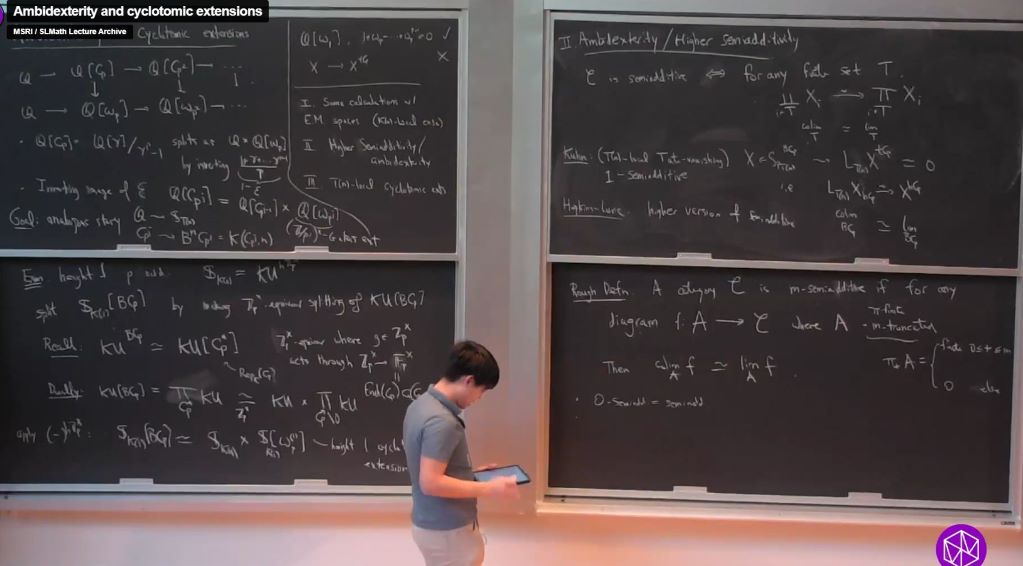 Ambidexterity and cyclotomic extensions
MSRI / SLMath Lecture Archive
Cyclotomic extensions
Q → Q[C_p] → Q[C_{p^2}] → ...
Q → Q[ω_p] → Q[ω_{p^2}] → ...
· Q[C_p] = Q[γ]/γ^p-1 splits as Q × Q[ω_p]
by inverting
1-ε
· Inverting image of ε Q[C_{p^i}] = Q[C_{p^{i-1}}] × Q[ω_{p^i}]
Goal: analogous story Q → S_{T(n)}
C_{p^i} → B^nC_{p^i} = K(C_{p^i}, n)
Q[ω_p],
X → X^{tG}
I. Some calculation w/
E.M. spaces (K(n)-local case)
II Higher Semiadditivity/
ambidexterity
III T(n)-local cyclotomic exts
height 1 p odd. S_{K(1)} = KU^{hZ_p^x}
split S_{K(1)}[BC_p] by making Z_p^x-equivar splitting of KU[BC_p]
Recall: KU^{BC_p} ≃ KU[C_p^*]
Z_p^x-equivar where g ∈ Z_p^x
acts through Z_p^x → F_p^x
Dually: KU[BC_p] = ∏_{C_p^*} KU ≃ KU × ∏_{C_p^*\0} KU
apply (-)^{hZ_p^x}: S_{K(1)}[BC_p] ≃ S_{K(1)} × S_{K(1)}[ω_p^{(1)}] ~ height 1 cyclo
extension
II. Ambidexterity/Higher semiadditivity
C is semiadditive ⇔ for any finite set T.
∐_{i∈T} X_i → ∏_{i∈T} X_i
colim_T = lim_T
Kuhn: (T(n)-local Tate-vanishing)
L_{T(n)} X^{tC_p} = 0
1-semiadditive
i.e L_{T(n)} X_{hC_p} ≃ X^{hC_p}
Hopkins-Lurie: higher version of semiadditive
colim_{BC_p} ≃ lim_{BC_p}
Rough Defn. A category C is m-semiadditive if for any
diagram f: A → C where A
· π-finite
· m-truncated
Then colim_A f ≃ lim_A f.
π_* A = { finite 0≤*≤m
0 else
· 0-semiadd = semiadd